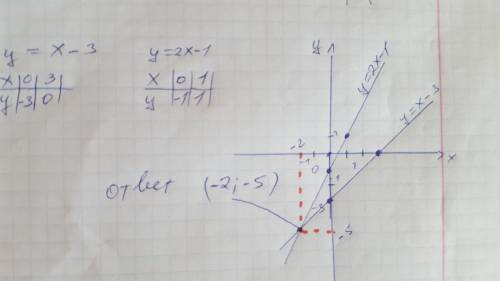 y = x - 3
x | 0 | 3
y | -3 | 0
y = 2x-1
x | 0 | 1
y | -1 | 1
y
y=2x-1
y=x-3
-2
-1
0
x
-3
-5
ответ (-2;-5)